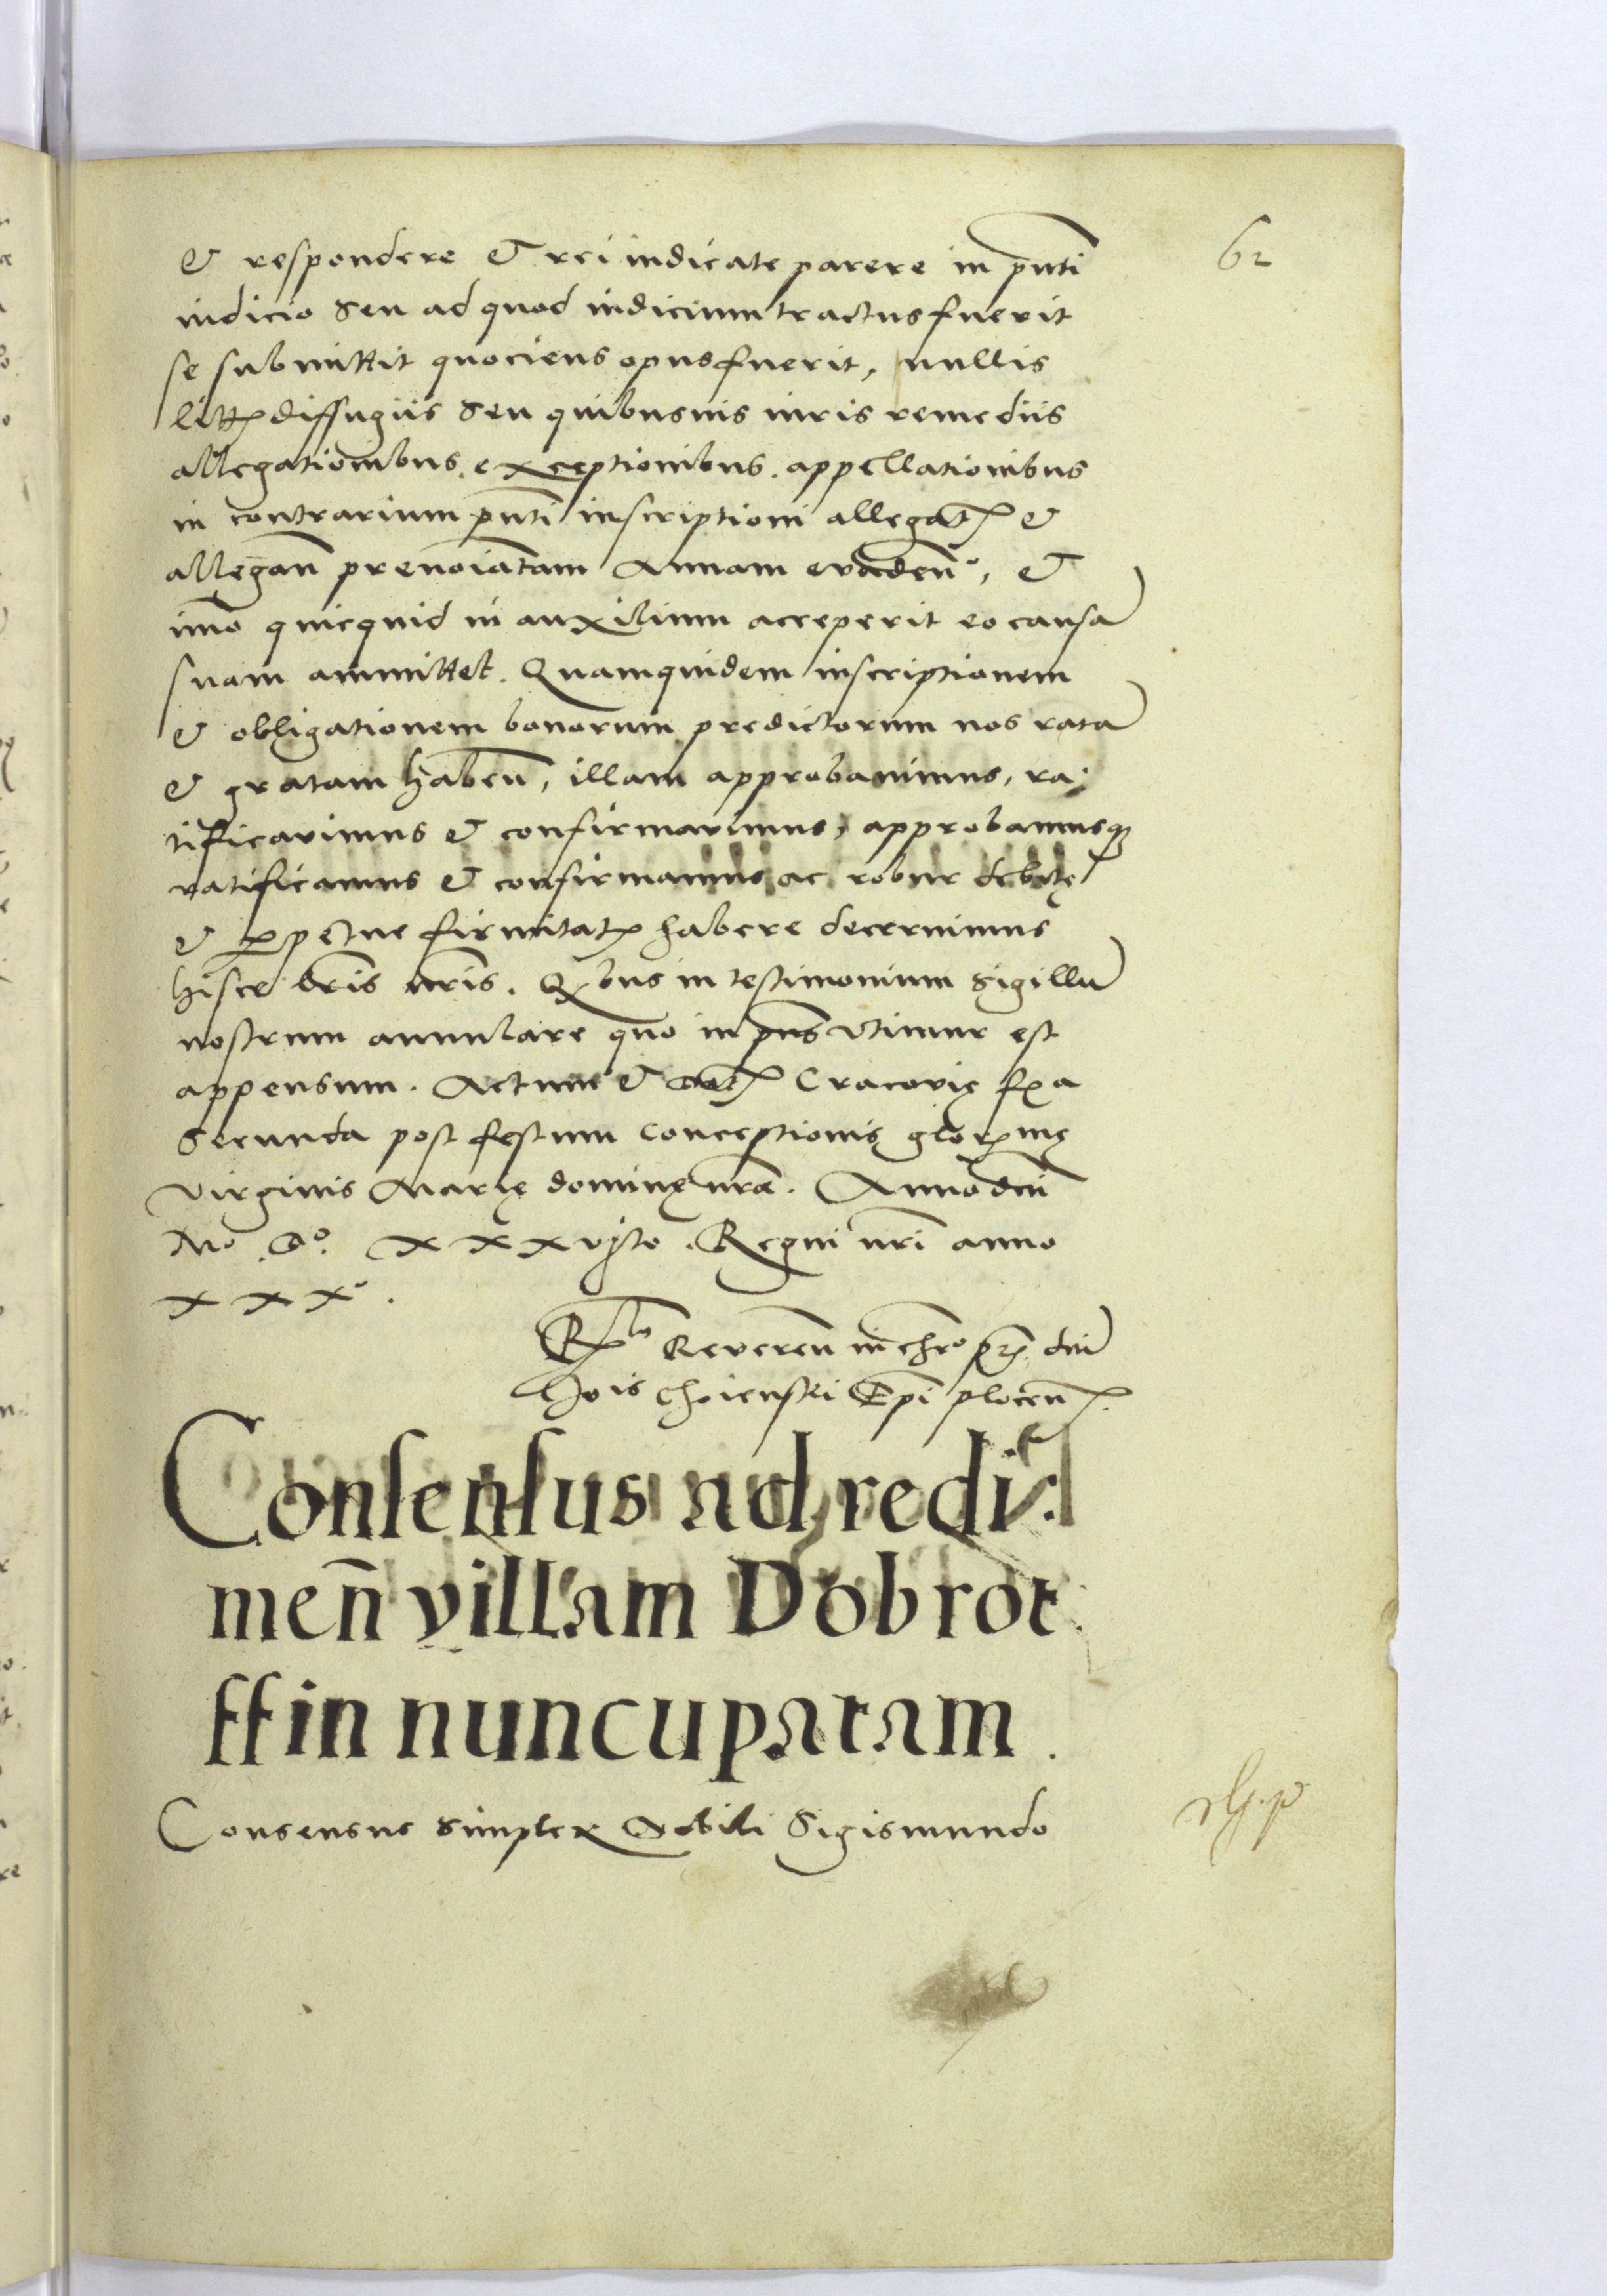 62
& respondere & rei iudicate parere in pñti
iudicio seu ad quod iudicium tractus fuerit
se submittit quociens opus fuerit, nullis
litt diffugiis seu quibusuis iuris remediis
allegationibus. exceptionibus. appellationibus
in contrarium pñti inscriptioni allegat &
allegan̄ prenoīatam Annam evaden̄, &
imo quicquid in auxilium acceperit eo causā
suam ammittet. Quamquidem inscriptionem
& obligationem bonorum predictorum nos ratā
& gratam haben̄, illam approbauimus, ra-
tificavimus & confirmavimus, approbamusq
ratificamus & confirmamus ac robur debitę
& perpetue firmitat habere decernimus
hisce lr̄is nr̄is. Qbus in testimonium sigillū
nostrum annulare quo in pn̄s vtimur est
appensum. Actum & dat Cracovię fa
Secunda post festum Conceptionis
virginis Marię dominę nrę. Anno dn̄i
Mo. Do. xxxvjto. Regni nr̄i anno
xxxo.
Reveren̄ in chro pr̄is dn̄i
Jois Choienski Ep̄i plocen̄.
Consensus ad redi-
men̄ villam Dobrot
ffin nuncupatam.
Consensus simplex Nobili Sigismundo